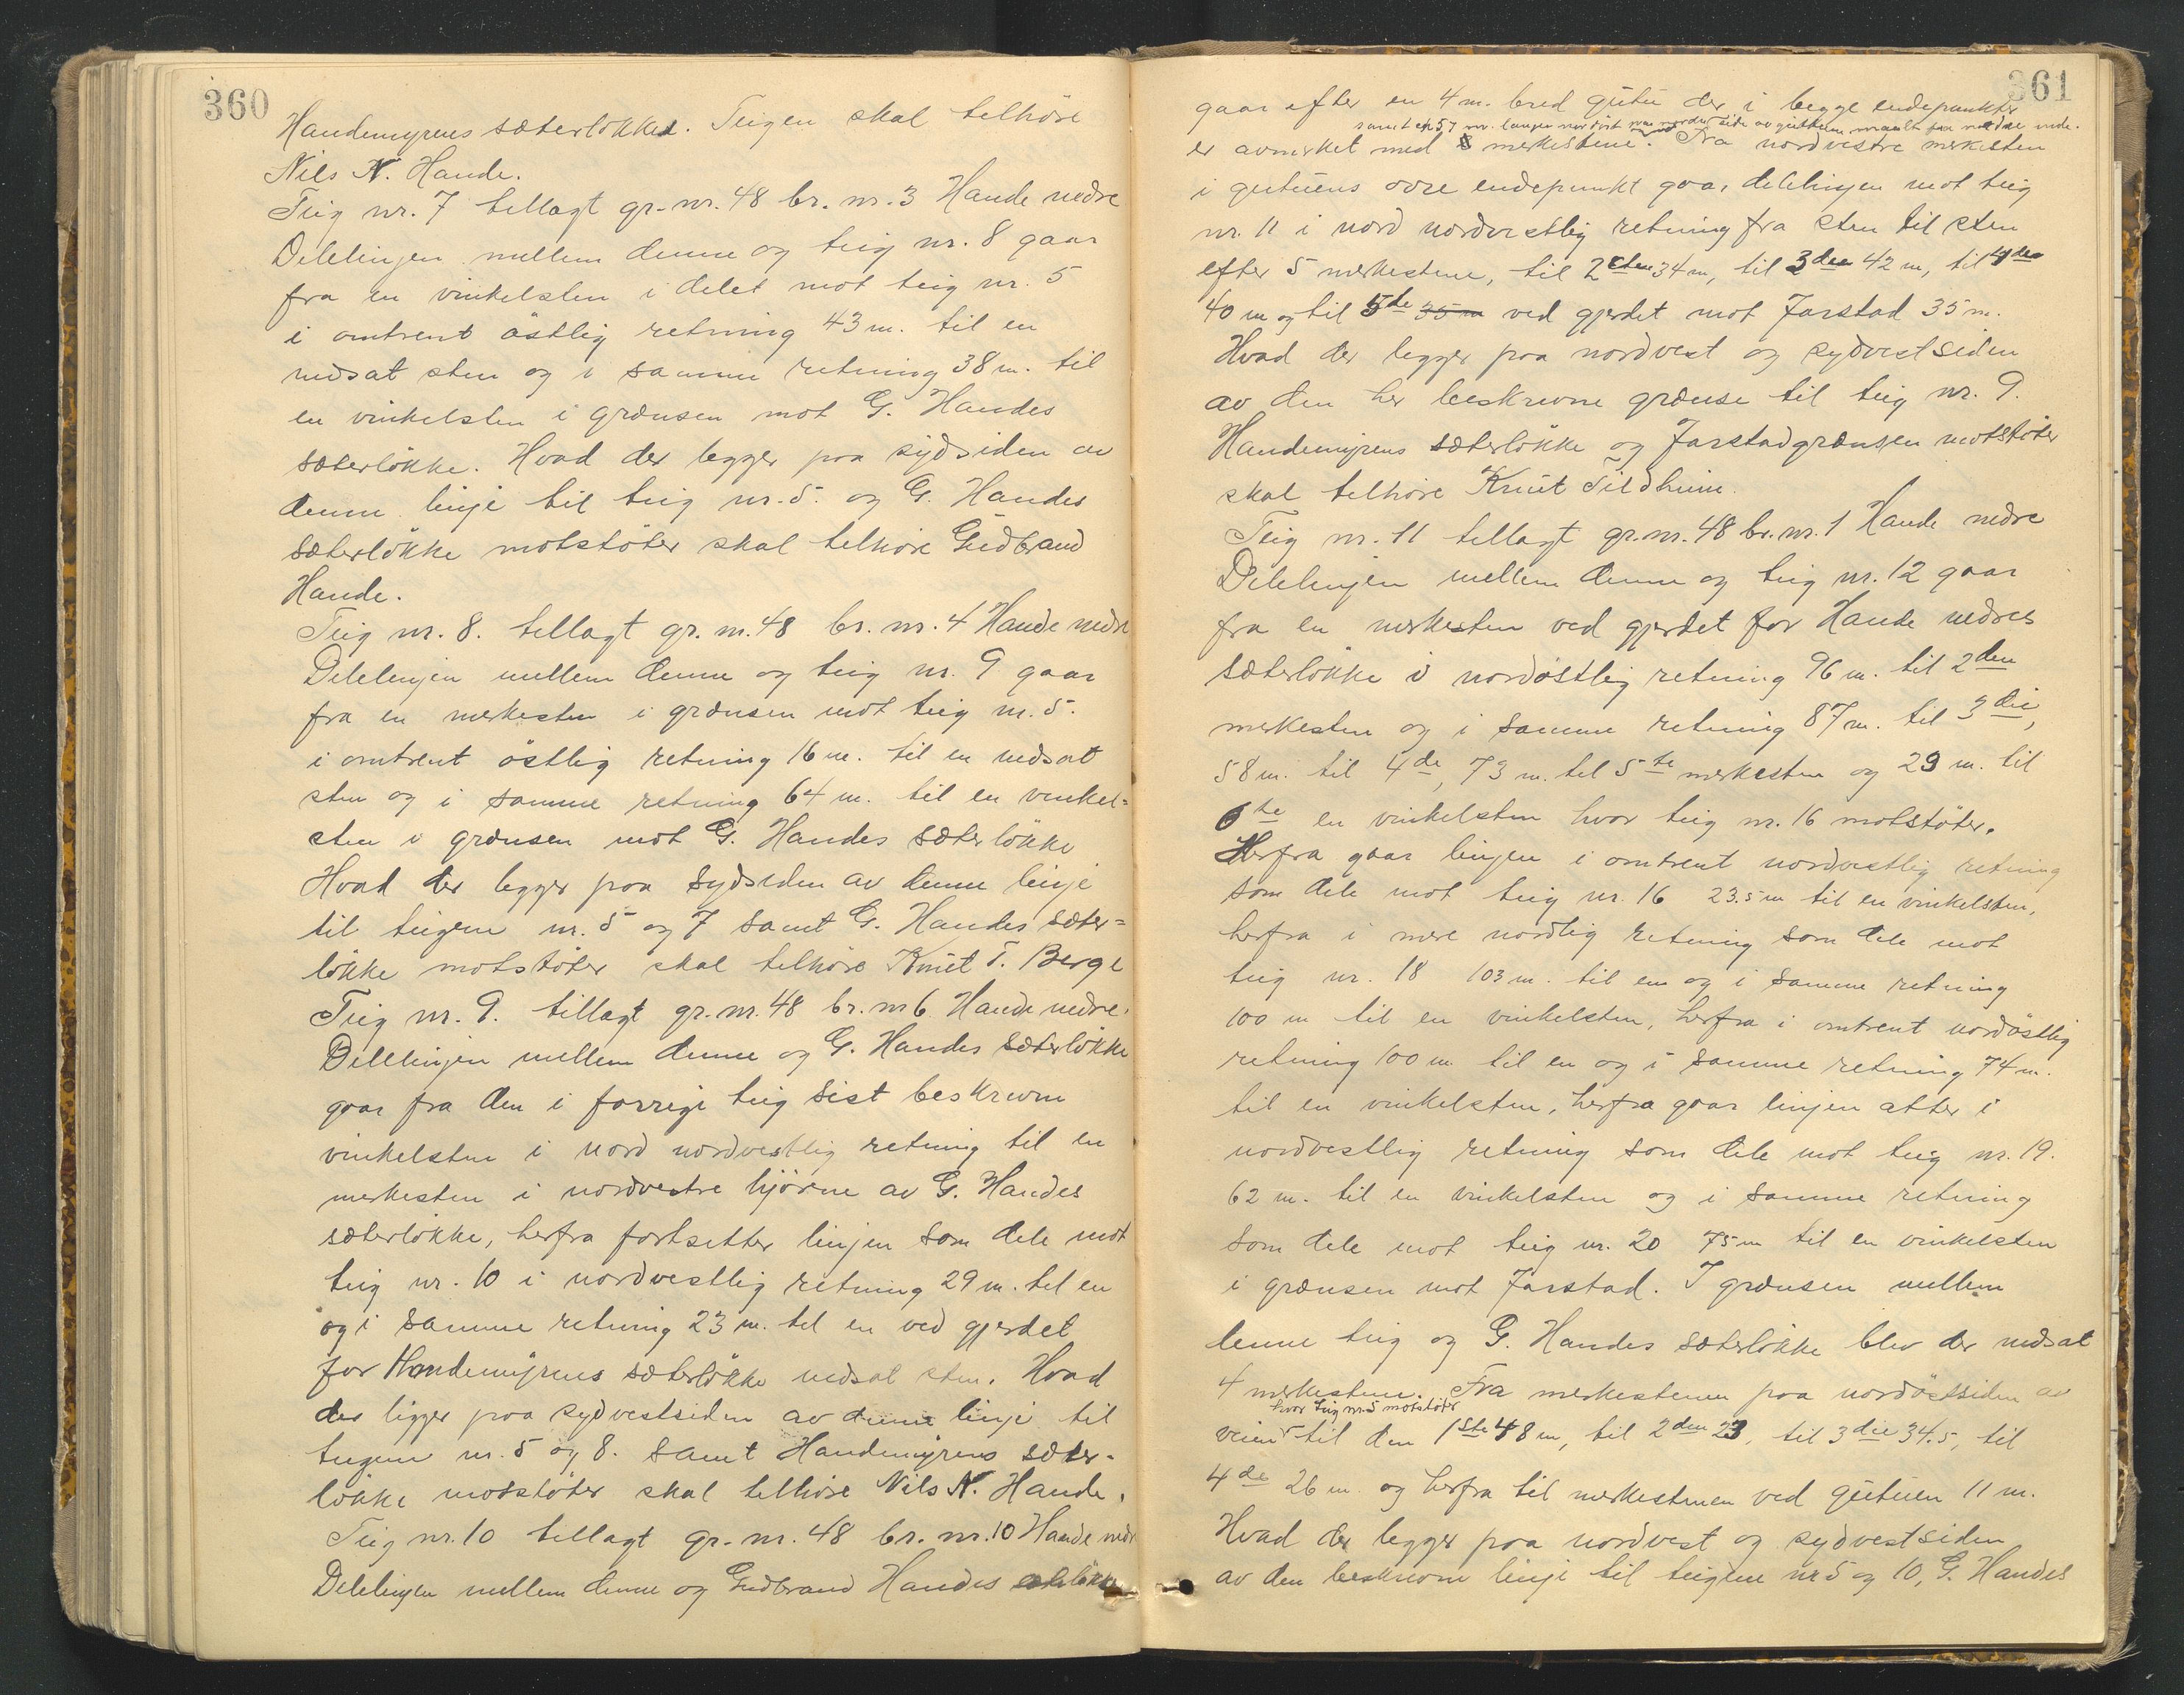 360
Handemyrens sæterløkke. Teigen skal tilhöre
Nils N. Hande.
Teig nr. 7 tillagt gr. nr. 48 br. nr. 3 Hande nedre
Delelinjen mellem denne og teig nr. 8 gaar
fra en vinkelsten i delet mot teig nr. 5
i omtrent östlig retning 43 m. til en
nedsat sten og i samme retning 38 m. til
en vinkelsten i grænsen mot G. Handes
sæterlökke. Hvad der ligger paa sydsiden av
denne linje til teig nr. 5. og G. Handes
sæterlökke motstöter skal tilhöre Gudbrand
Hande.
Teig nr. 8. tillagt gr. nr. 48 br. nr. 4 Hande nedre
Delelinjen mellem denne og teig nr. 9 gaar
fra en merkesten i grænsen mot teig nr. 5.
i omtrent östlig retning 16 m. til en nedsat
sten og i samme retning 64 m. til en vinkel=
sten i grænsen mot G. Handes sæterlökke
Hvad der ligger paa sydsiden av denne linje
til teigene nr. 5 og 7 samt G. Handes sæter=
lökke motstöter skal tilhöre Knut T. Berge
Teig nr. 9. tillagt gr. nr. 48 br. nr 6 Hande nedre.
Delelinjen mellem denne og G. Handes sæterlökke
gaar fra den i forrige teig sist beskrevne
vinkelsten i nord nordvestlig retning til en
merkesten i nordvestre hjörne av G. Handes
sæterlökke, herfra fortsetter linjen som dele mot
teig nr. 10 i nordvestlig retning 29 m. til en
og i samme retning 23 m. til en ved gjerdet
for Handemyrens sæterlökke nedsat sten. Hvad
der ligger paa sydvestsiden av denne linje til
teigene nr. 5 og 8. samt Handemyrens sæter-
lökke motstöter skal tilhöre Nils N. Hande.
Teig nr. 10 tillagt gr. nr. 48 br. nr. 10 Hande nedre
Delelinjen mellem denne og Gudbrand Handes sæterlökke
361
gaar efter en 4 m. bred gutu der i begge endepunkter
samt en 57 m. langer nordöst paa nordre side av gutuen maalt fra nedre ende.
er avmerket med merkestene. Fra nordvestre merkesten
i gutuens övre endepunkt gaar delelinjen mot teig
nr. 11 i nord nordvestlig retning fra sten til sten
efter 5 merkestene, til 2den 34 m, til 3die 42 m, til 4de
40 m og til 5te 35 m ved gjerdet mot Jarstad 35 m.
Hvad der ligger paa nordvest og sydvestsiden
av den her beskrevne grænse til teig nr. 9.
Handemyrens sæterlökke og Jarstadgrænsen motstöter
skal tilhöre Knut Tildheim.
Teig nr. 11 tillagt gr. nr. 48 br. nr. 1 Hande nedre
Delelinjen mellem denne og teig nr. 12 gaar
fra en merkesten ved gjerdet for Hande nedres
sæterlökke i nordöstlig retning 96 m. til 2den
merkesten og i samme retning 87 m. til 3die,
58 m. til 4de, 73 m. til 5te merkesten og 29 m. til
6te en vinkelsten hvor teig nr. 16 motstöter.
Herfra gaar linjen i omtrent nordvestlig retning
som dele mot teig nr. 16 23.5 m til en vinkelsten,
herfra i mere nordlig retning som dele mot
teig nr. 18 103 m. til en og i samme retning
100 m til en vinkelsten, herfra i omtrent nordöstlig
retning 100 m til en og i samme retning 74 m.
til en vinkelsten, herfra gaar linjen atter i
nordvestlig retning som dele mot teig nr. 19.
62 m. til en vinkelsten og i samme retning
som dele mot teig nr. 20 75 m til en vinkelsten
i grænsen mot Jarstad. I grænsen mellem
denne teig og G. Handes sæterlökke blev der nedsat
4 merkestene. Fra merkestenen paa nordöstsiden av
hvor teig nr. 5 motstöter
veien til den 1ste 48 m, til 2den 23, til 3die 34.5, til
4de 26 m. og herfra til merkestenen ved gutuen 11 m.
Hvad der ligger paa nordvest og sydvestsiden
av den beskrevne linje til teigene nr 5 og 10, G. Handes